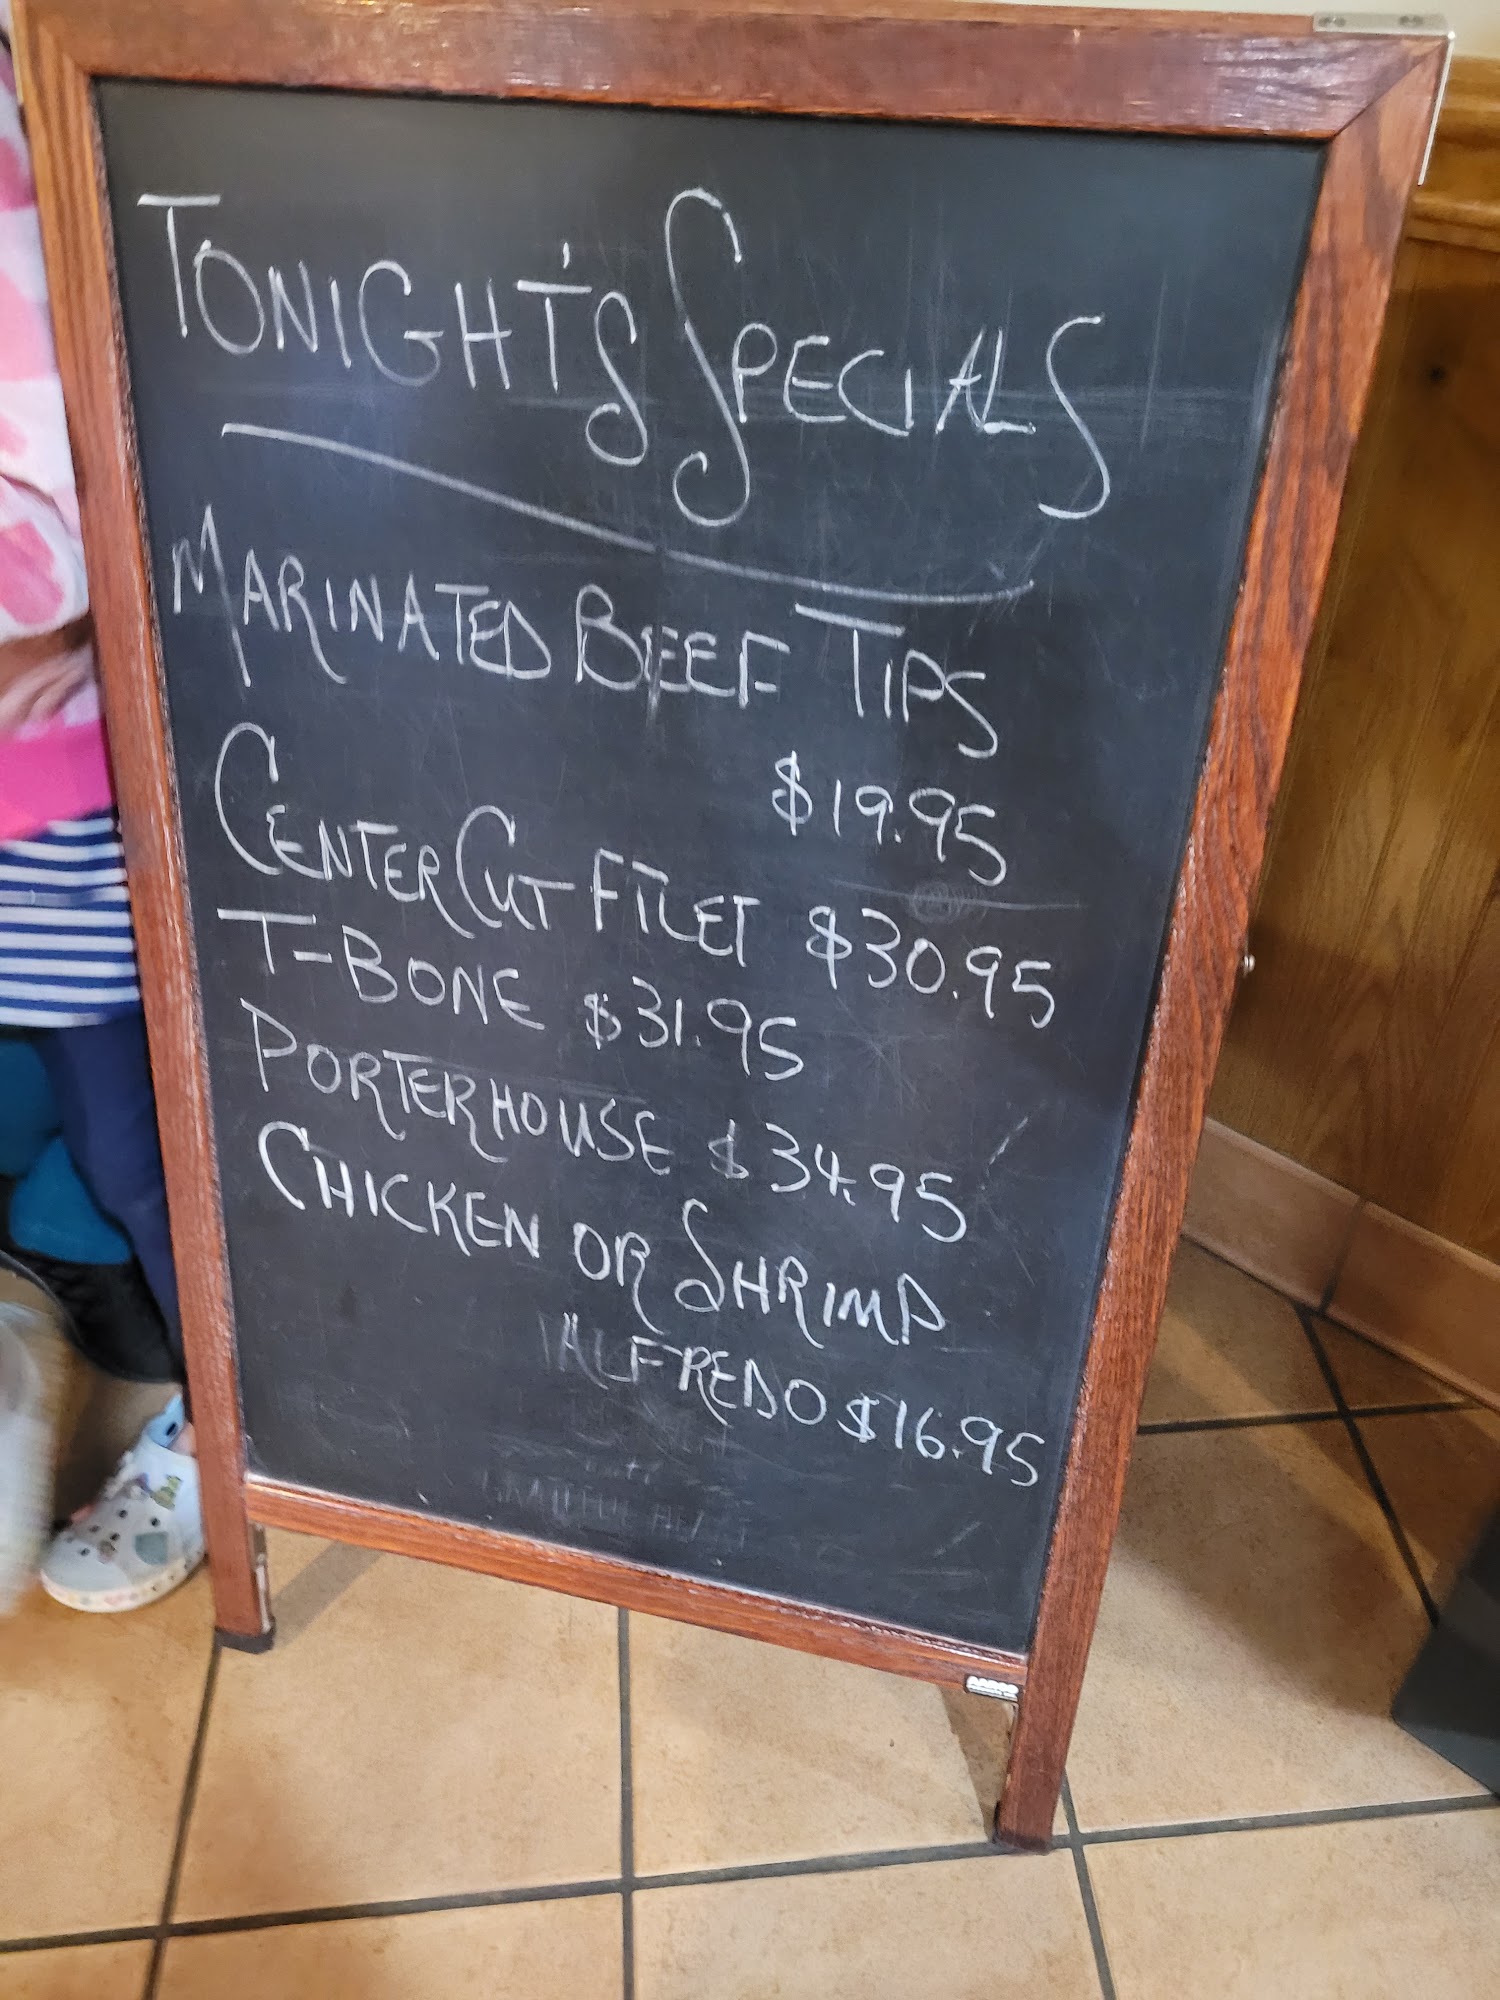 TONIGHT'S SPECIALS
MARINATED BEEF TIPS
$19.95
CENTER CUT FILET $30.95
T-BONE $31.95
PORTERHOUSE $34.95
CHICKEN OR SHRIMP
ALFREDO $16.95